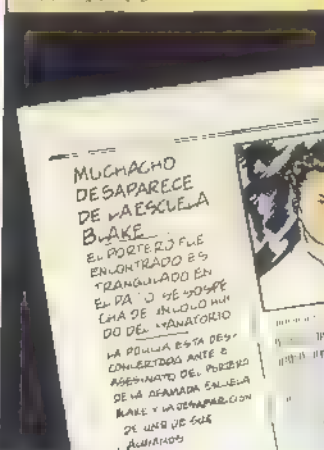 MUCHACHO
DESAPARECE
DE LA ESCUELA
BLAKE
EL PORTERO FUE
ENCONTRADO ES
TRANGULADO EN
EL PATIO SE SOSPE
CHA DE UN LOCO HUI
DO DEL SANATORIO
LA POLICIA ESTA DES-
CONCERTADA ANTE E
ASESINATO DEL PORTERO
DE LA AFAMADA ESCUELA
BLAKE Y LA DESAPARICION
DE UNO DE SUS
ALUMNOS